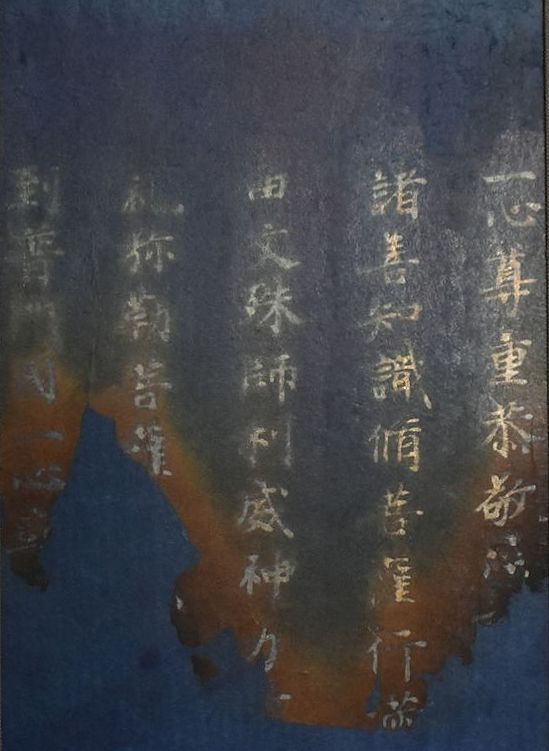 一心尊重恭敬
諸善知識脩菩薩行
由文殊師利威神力
礼弥勒菩薩
到普門国一心